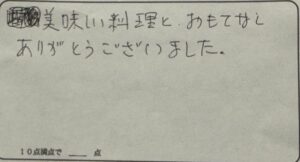 美味しい料理と、おもてなし
ありがとうございました。
10点満点で ___ 点